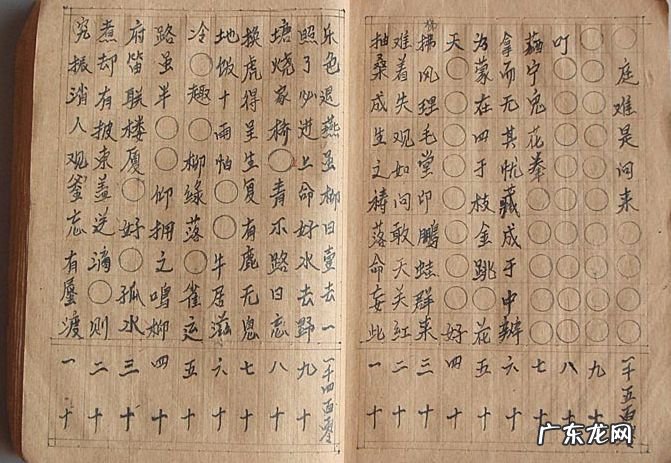 庭难是问来 一千五百零
○○○○○○○○○○ 九十
叮○○○○○○○○○ 八十
藕宁鬼花拳○○○○○ 七十
拿而无其忧藏成于中辩 六十
为蒙在四于枝金跳○花 五十
天○○○○○○○○好 四十
扬风理毛堂印鹏蛙群来 三十
难着失观如问敢天关红 二十
抽桑成生之祷落命妄此 一十
乐色退燕虽柳日壹去一 一千四百零
照了必进上命好水去野 九十
塘烧家桥○青不路日忘 八十
换虎得呈生复有鹿无鬼 七十
地饭十雨怕○○牛居滋 六十
冷○趣○柳绿落○雀运 五十
路虽半○○仰拥之鸣柳 四十
府笛联楼厦○好○孤水 三十
煮却有披束盖逆滴○则 二十
究振消人观釜忘有屡渡 一十
广东龙网